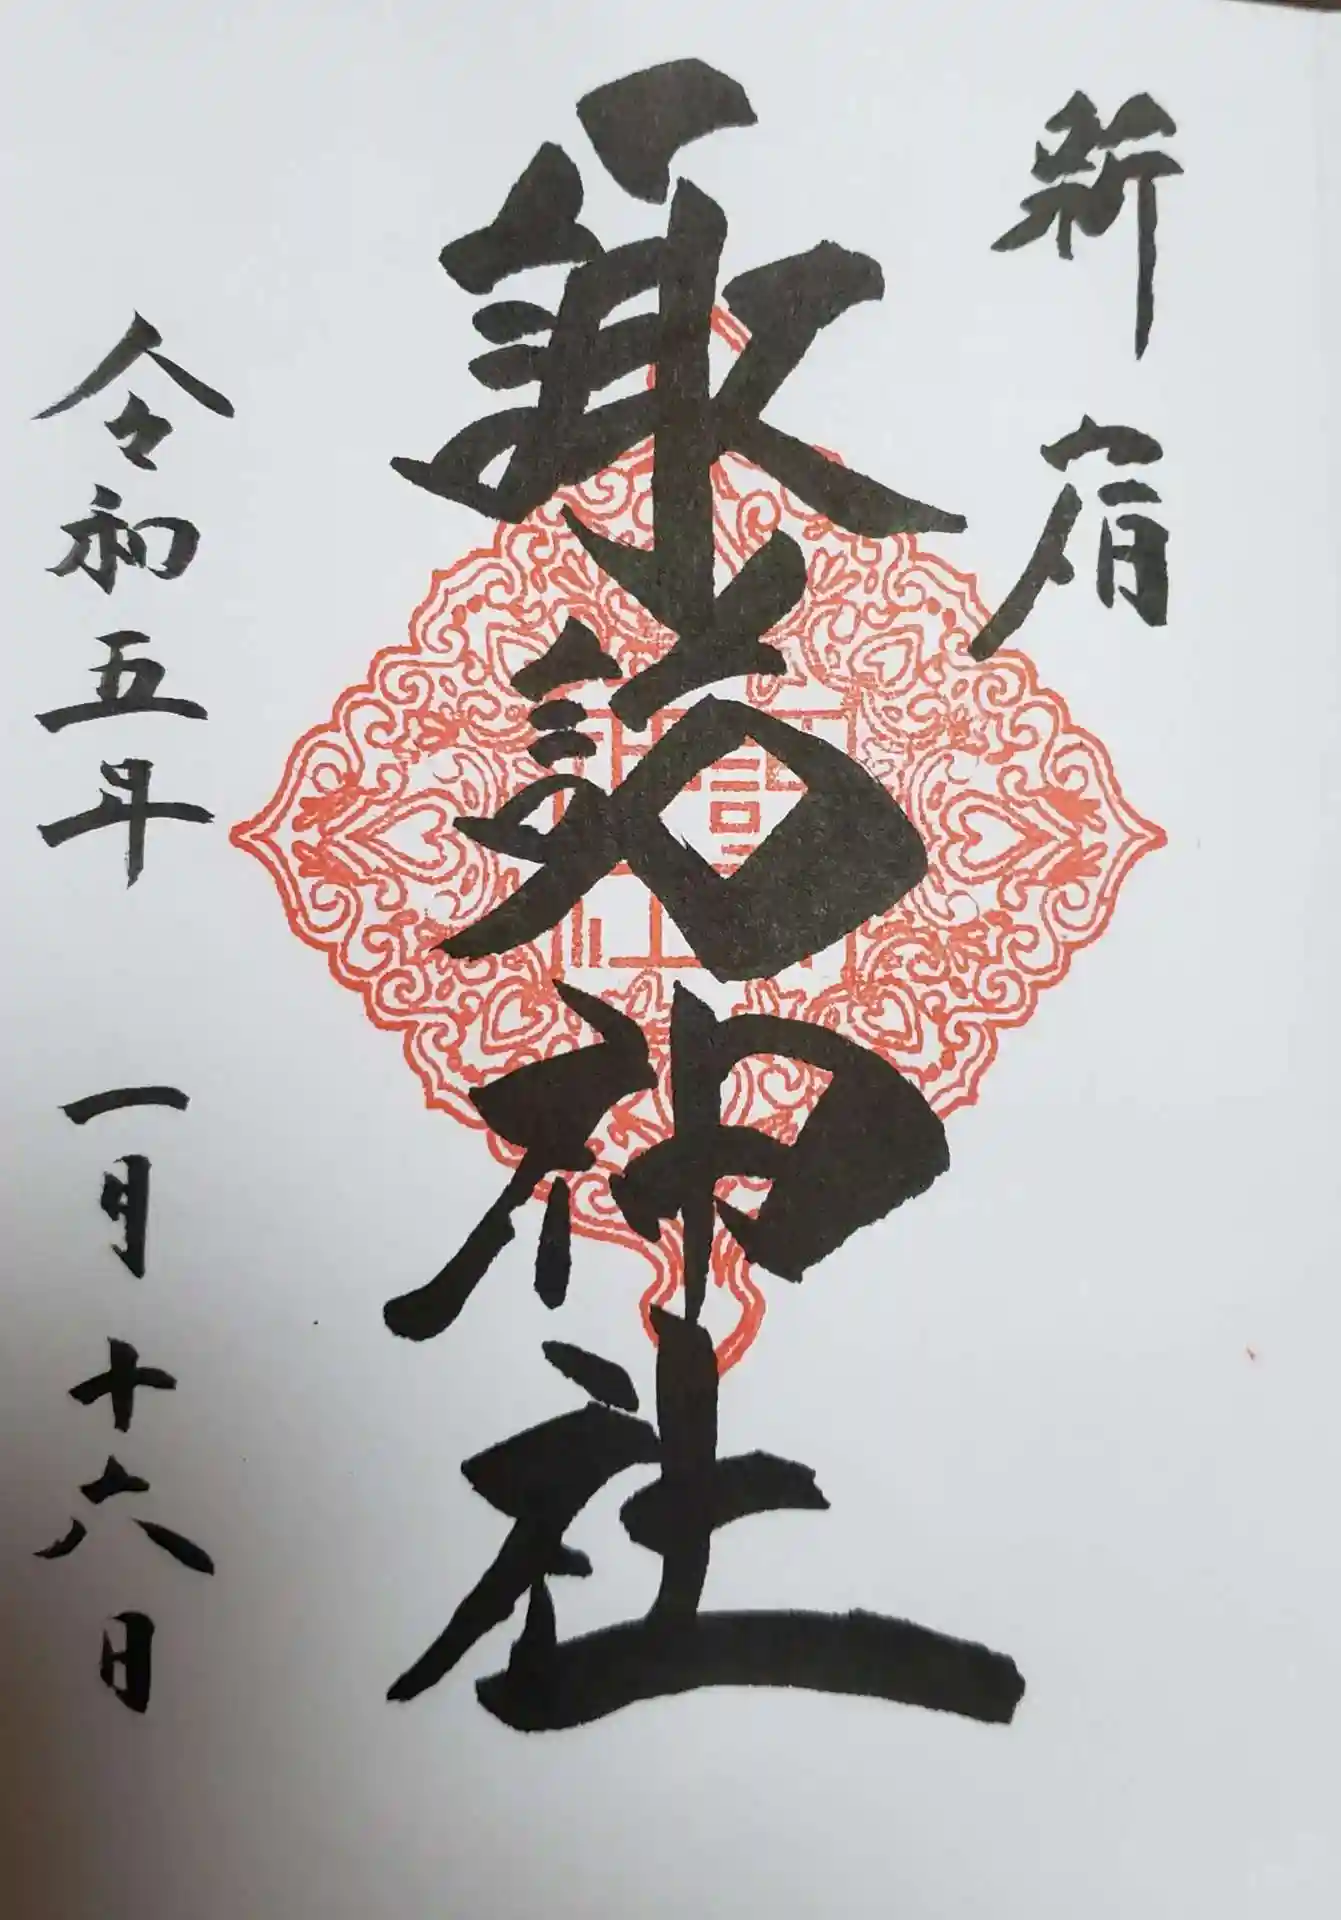 新宿
諏訪神社
令和五年 一月十六日